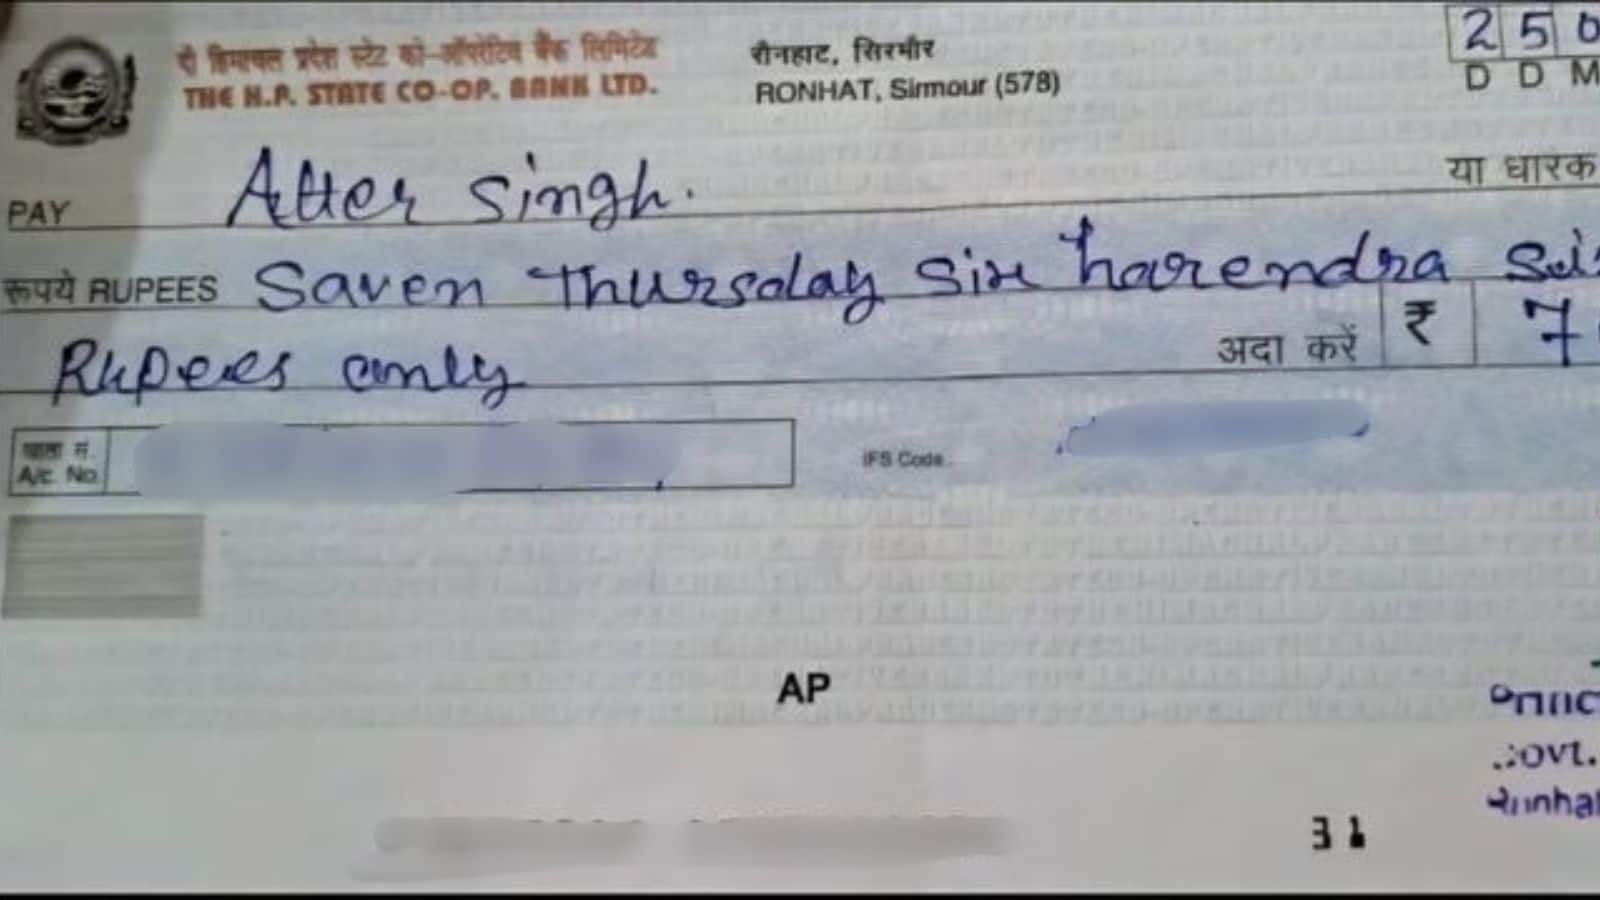 दी हिमाचल प्रदेश स्टेट को-ऑपरेटिव बैंक लिमिटेड
THE H.P. STATE CO-OP. BANK LTD.
रोनहाट, सिरमौर
RONHAT, Sirmour (578)
2 5 0
D D M
PAY Atter Singh.
या धारक
रूपये RUPEES Saven Thursday six harendra
Rupees only
अदा करें ₹ 7
खाता सं.
A/c. No.
IFS Code
AP
Govt.
31